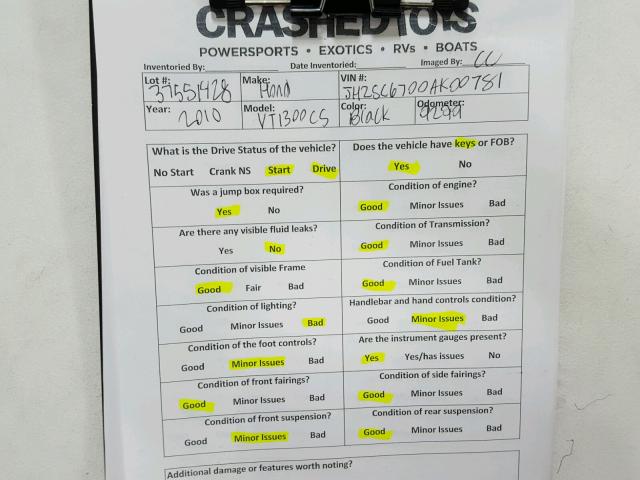 CRASHEDTOYS
POWERSPORTS • EXOTICS • RVs • BOATS
Inventoried By: Date Inventoried: Imaged By: CC
Lot #: 37551428 Make: Hond VIN #: JH2SC6700AK00781
Year: 2010 Model: VT1300CS Color: Black Odometer: 9299
What is the Drive Status of the vehicle? Does the vehicle have keys or FOB?
No Start Crank NS Start Drive Yes No
Was a jump box required? Condition of engine?
Yes No Good Minor Issues Bad
Are there any visible fluid leaks? Condition of Transmission?
Yes No Good Minor Issues Bad
Condition of visible Frame Condition of Fuel Tank?
Good Fair Bad Good Minor Issues Bad
Condition of lighting? Handlebar and hand controls condition?
Good Minor Issues Bad Good Minor Issues Bad
Condition of the foot controls? Are the instrument gauges present?
Good Minor Issues Bad Yes Yes/has issues No
Condition of front fairings? Condition of side fairings?
Good Minor Issues Bad Good Minor Issues Bad
Condition of front suspension? Condition of rear suspension?
Good Minor Issues Bad Good Minor Issues Bad
Additional damage or features worth noting?